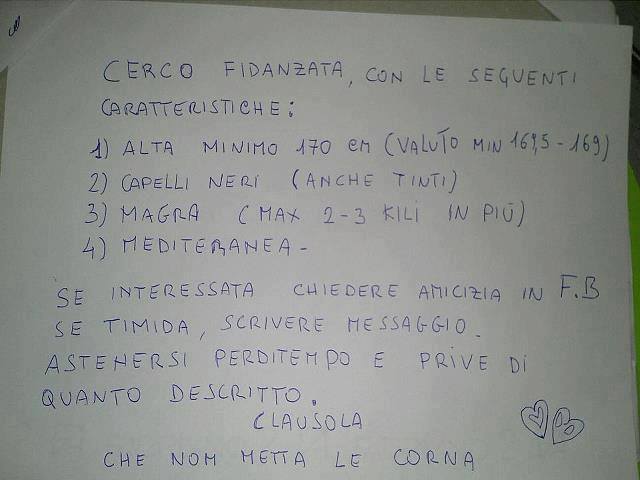 CERCO FIDANZATA, CON LE SEGUENTI
CARATTERISTICHE:
1) ALTA MINIMO 170 CM (VALUTO MIN 169,5 - 169)
2) CAPELLI NERI (ANCHE TINTI)
3) MAGRA (MAX 2-3 KILI IN PIÙ)
4) MEDITERANEA -
SE INTERESSATA CHIEDERE AMICIZIA IN F.B
SE TIMIDA, SCRIVERE MESSAGGIO.
ASTENERSI PERDITEMPO E PRIVE DI
QUANTO DESCRITTO.
CLAUSOLA
CHE NON METTA LE CORNA